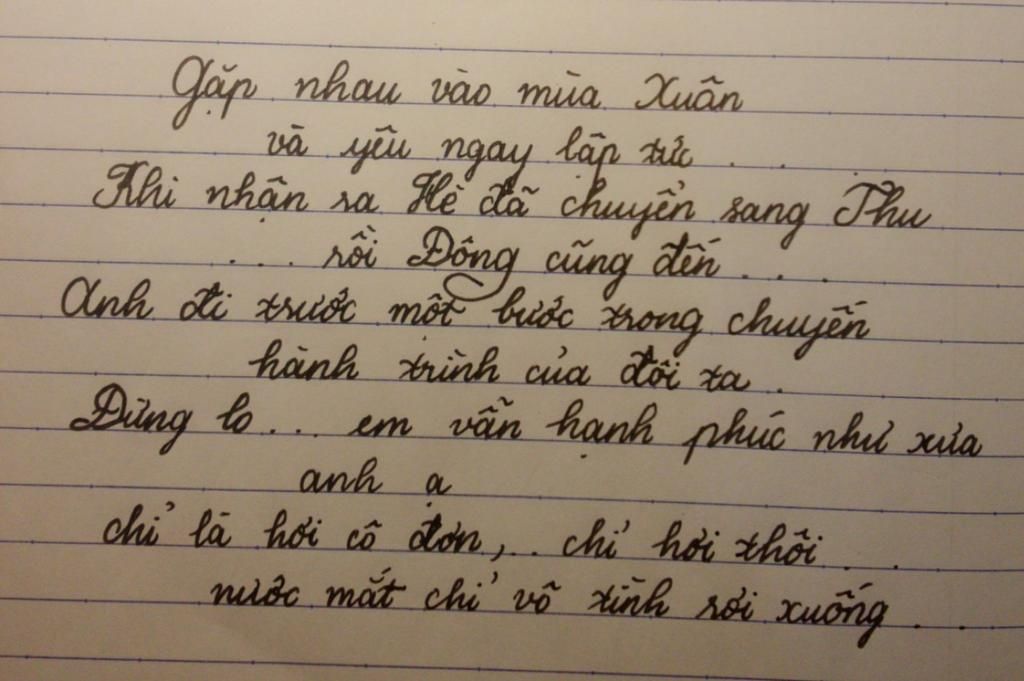 Gặp nhau vào mùa Xuân
và yêu ngay lập tức . . .
Khi nhận ra Hè đã chuyển sang Thu
. . . rồi Đông cũng đến . . .
Anh đi trước một bước trong chuyến
hành trình của đôi ta .
Đừng lo . . . em vẫn hạnh phúc như xưa
anh ạ
chỉ là hơi cô đơn , . . chỉ hơi thôi . . .
nước mắt chỉ vô tình rơi xuống . . .